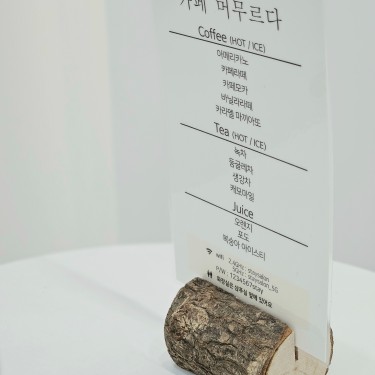 카페 머무르다
Coffee (HOT / ICE)
아메리카노
카페라떼
카페모카
바닐라라떼
카라멜 마끼아또
Tea (HOT / ICE)
녹차
둥굴레차
생강차
캐모마일
Juice
오렌지
포도
복숭아 아이스티
wifi 2.4GHz
5GHz
P/W : 1234567stay
화장실은